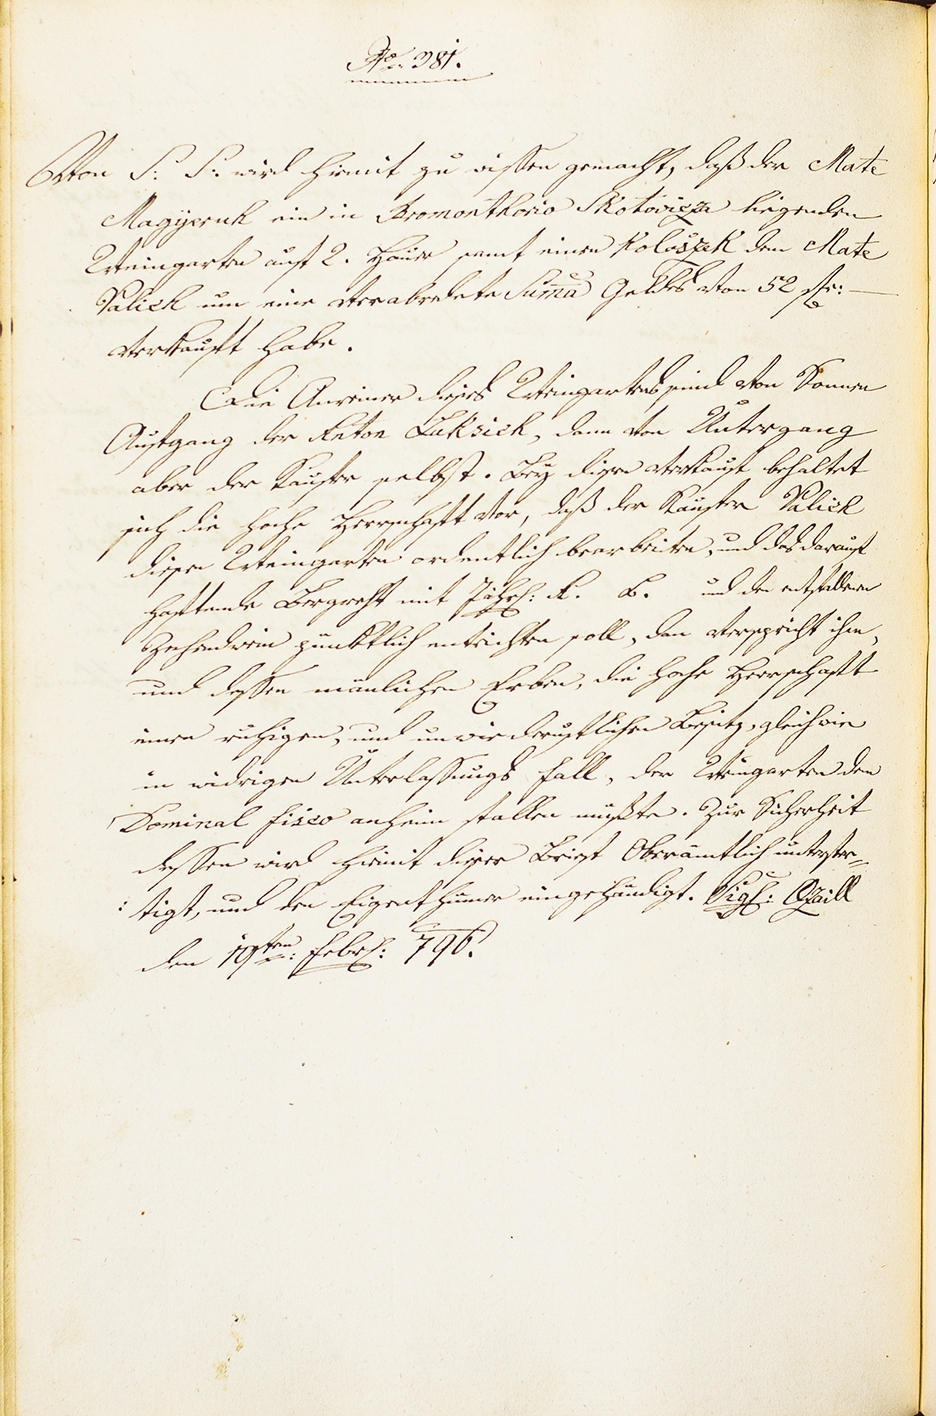 No. 381.
Von S: S: wird hiemit zu wissen gemacht, daß der Mate
Magyeruk ein in Promonthorio Skotovicza liegenden
Weingarten auf 2. Hauer samt einen Koloszek dem Mate
Valich um eine verabredete Suma Geldes von 52 fr: —
verkauft habe.
Die Anreiner dieses Weingartens sind von Sonnen
Aufgang der Anton Luksich, dann von Untergang
aber der Käufer selbst. Bey diesen Verkauf behaltet
sich die Hoche Herrschaft vor, daß der Käufer Valich
diesen Weingarten ordentlich bearbeiten, und das darauf
haftende Bergrecht mit Jährl: K. B. und den entfallenen
Zehendwein pünktlich entrichten soll, dan verspricht ihm,
und dessen mänlichen Erben, die Hohe Herrschaft
einen ruhigen, und unwiederruflichen Besitz, gleichwie
in widrigen Unterlassungs Fall, der Weingarten dem
Dominal Fisco anheim fallen müßte. Zur Sicherheit
dessen wird hiemit dieser Brief Oberämtlich unterfer=
tigt, und den Eigenthümer eingehändigt. Sigl: Ozaill
den 19ten: Febrl: 796.